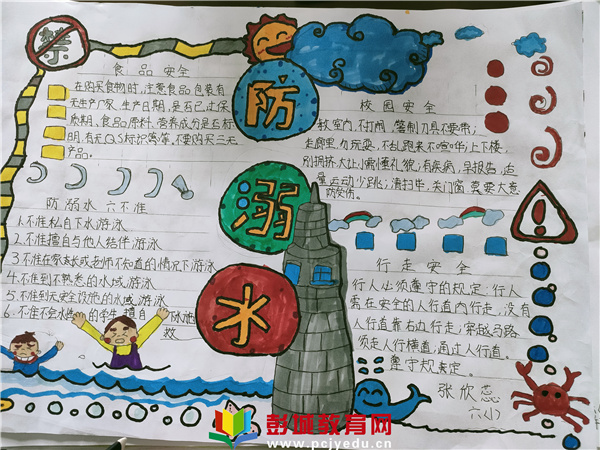 禁
防
溺
水
食品安全
在购买食物时,注意食品包装有
无生产厂家,生产日期,是否已过保
质期,食品原料,营养成分是否标
明,有无QS标识等,不要购买三无
产品。
防溺水六不准
1.不准私自下水游泳
2.不准擅自与他人结伴游泳
3.不准在家长或老师不知道的情况下游泳
4.不准到不熟悉的水域游泳
5.不准到无安全设施的水域游泳
6.不准不会水性的学生擅自
救
校园安全
教室内,不打闹,管制刀具不要带;
走廊里,勿玩耍,不乱跑来不喧哗;上下楼,
别拥挤,
有疾病,早报告,
运动少跳;清扫卫生,关门窗,
防受伤。
行走安全
行人必须遵守的规定:行人
需在安全的人行道内行走,没有
人行道靠右边行走;穿越马路
须走人行横道;通过人行道。
遵守规定。
张欣蕊
六(1)
彭城教育网
www.pcjyedu.cn